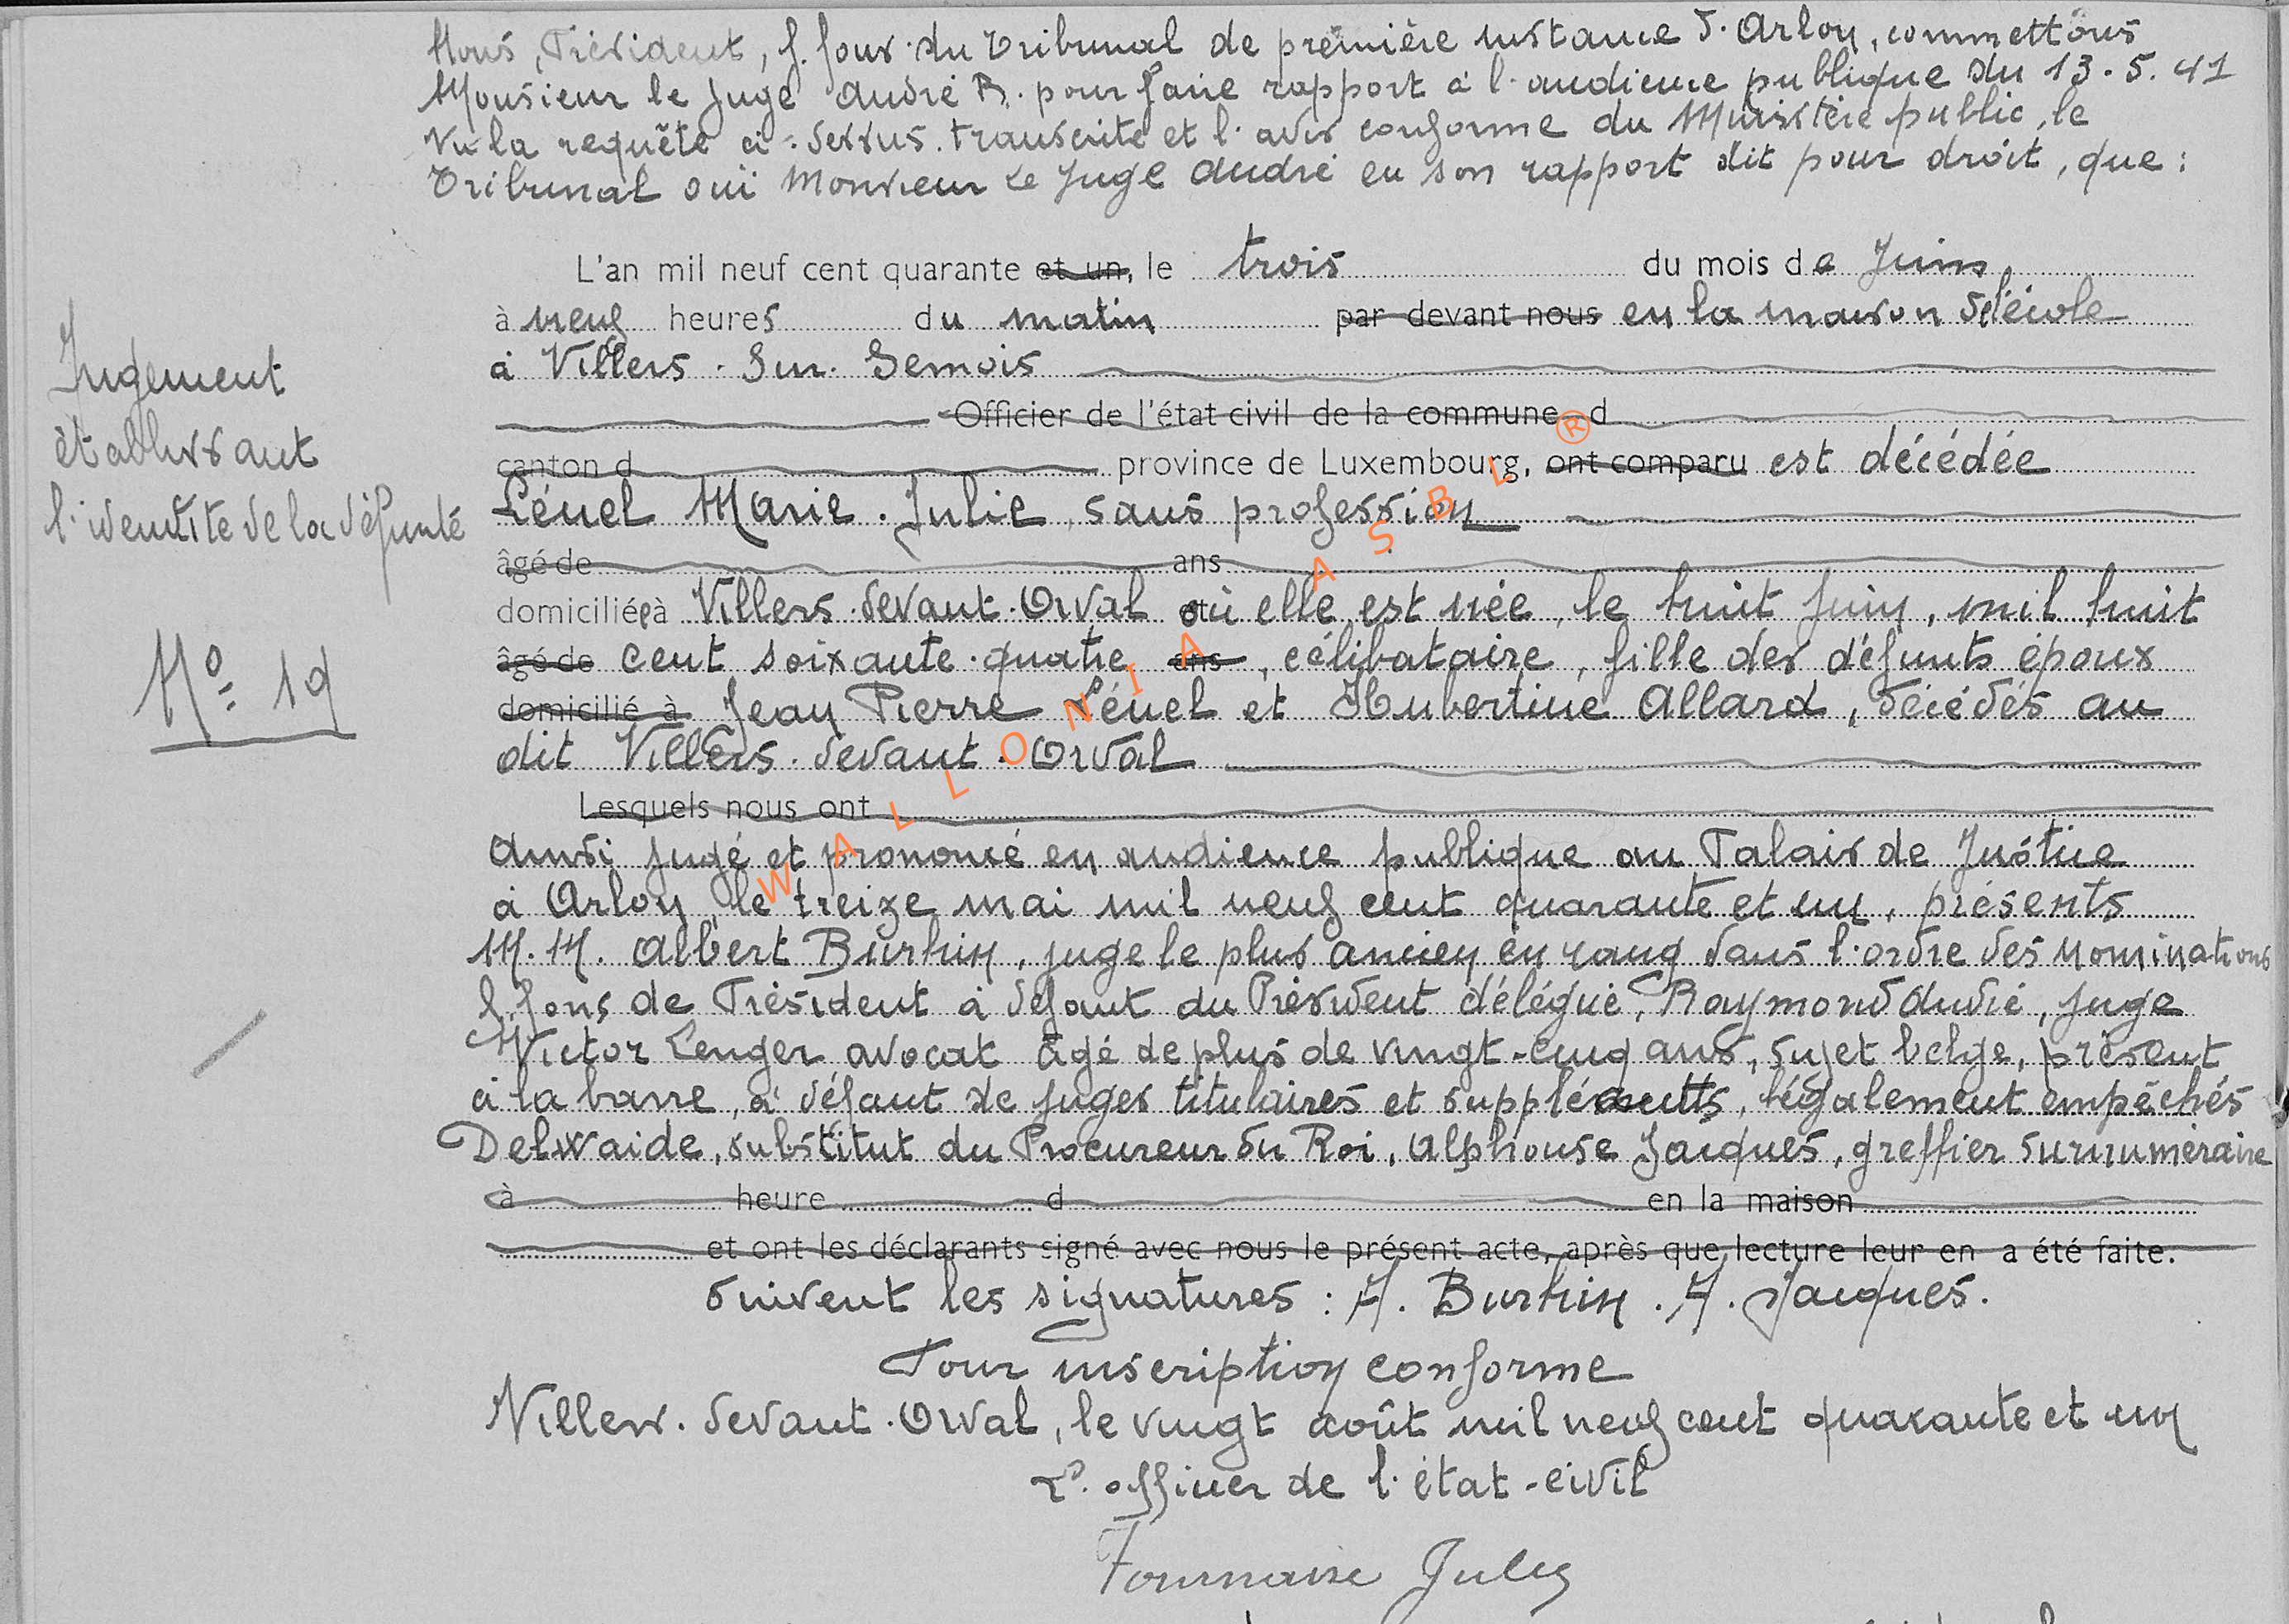 Nous, Président, f. fons. du Tribunal de première instance d'Arlon, commettons
Monsieur le Juge André R. pour faire rapport à l'audience publique du 13.5.41
Vu la requête ci-dessus transcrite et l'avis conforme du Ministère public, le
Tribunal ouï Monsieur le Juge André en son rapport dit pour droit, que :
L'an mil neuf cent quarante et un, le trois du mois de Juin
à neuf heures du matin par devant nous en la maison d'école
à Villers-Sur-Semois
Officier de l'état civil de la commune d
canton d province de Luxembourg, ont comparu est décédée
Jugement
établissant
l'identité de la défunte
N° 19
Lénel Marie-Julie, sans profession
âgé de ans
domiciliée à Villers-devant-Orval où elle est née, le huit juin, mil huit
âgé de cent soixante-quatre ans, célibataire, fille des défunts époux
domicilié à Jean Pierre Lénel et Hubertine Allard, décédés au
dit Villers-devant-Orval
Lesquels nous ont
Ainsi jugé et prononcé en audience publique au Palais de Justice
à Arlon, le treize mai mil neuf cent quarante et un, présents
M.M. Albert Burhin, juge le plus ancien en rang dans l'ordre des nominations
f. fons de Président à défaut du Président délégué, Raymond André, juge
Victor Lenger avocat âgé de plus de vingt-cinq ans, sujet belge, présent
à la barre, à défaut de juges titulaires et suppléants, légalement empêchés
Delwaide, substitut du Procureur du Roi, Alphonse Jacques, greffier surnuméraire
à heure d en la maison
et ont les déclarants signé avec nous le présent acte, après que lecture leur en a été faite.
Suivent les signatures : A. Burhin. A. Jacques.
Pour inscription conforme
Villers-devant-Orval, le vingt août mil neuf cent quarante et un
L'officier de l'état-civil
Fournaise Jules
WALLONIA ASBL ®